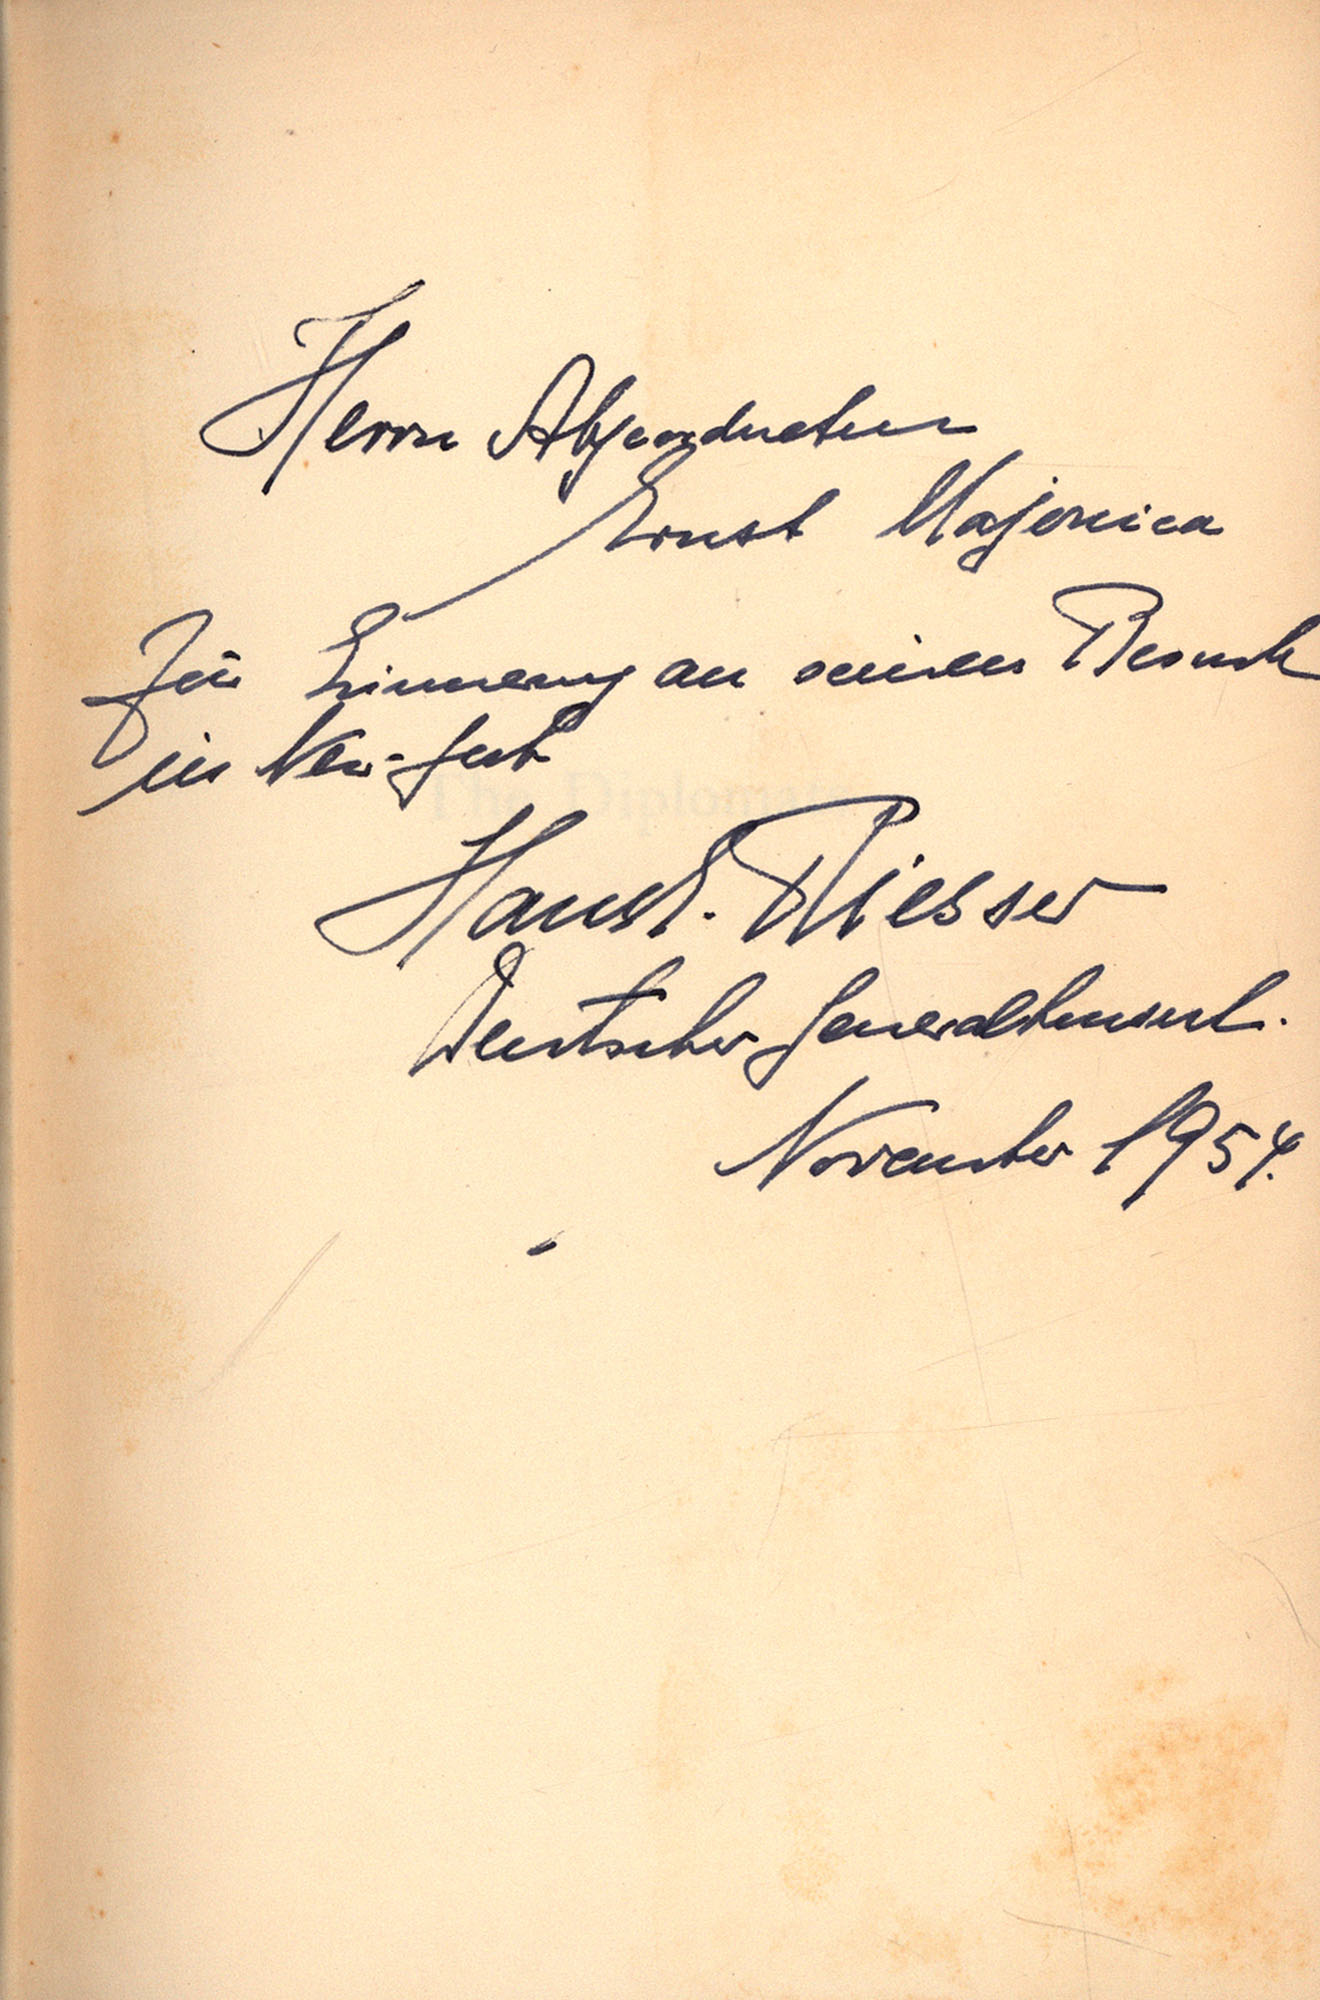 Herrn Abgeordneten
Ernst Majonica
Zur Erinnerung an seinen Besuch
in New-York
Hans E. Riesser
Deutscher Generalkonsul.
November 1954.
The Diplomats